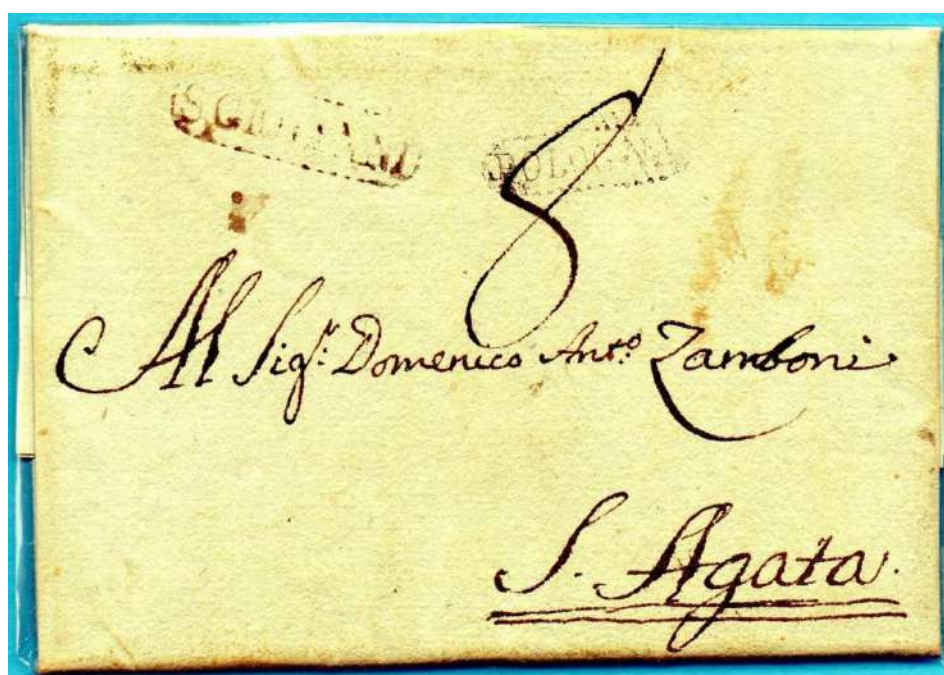 BOLOGNA
8
Al Sig.r Domenico Ant.o Zamboni
S. Agata.